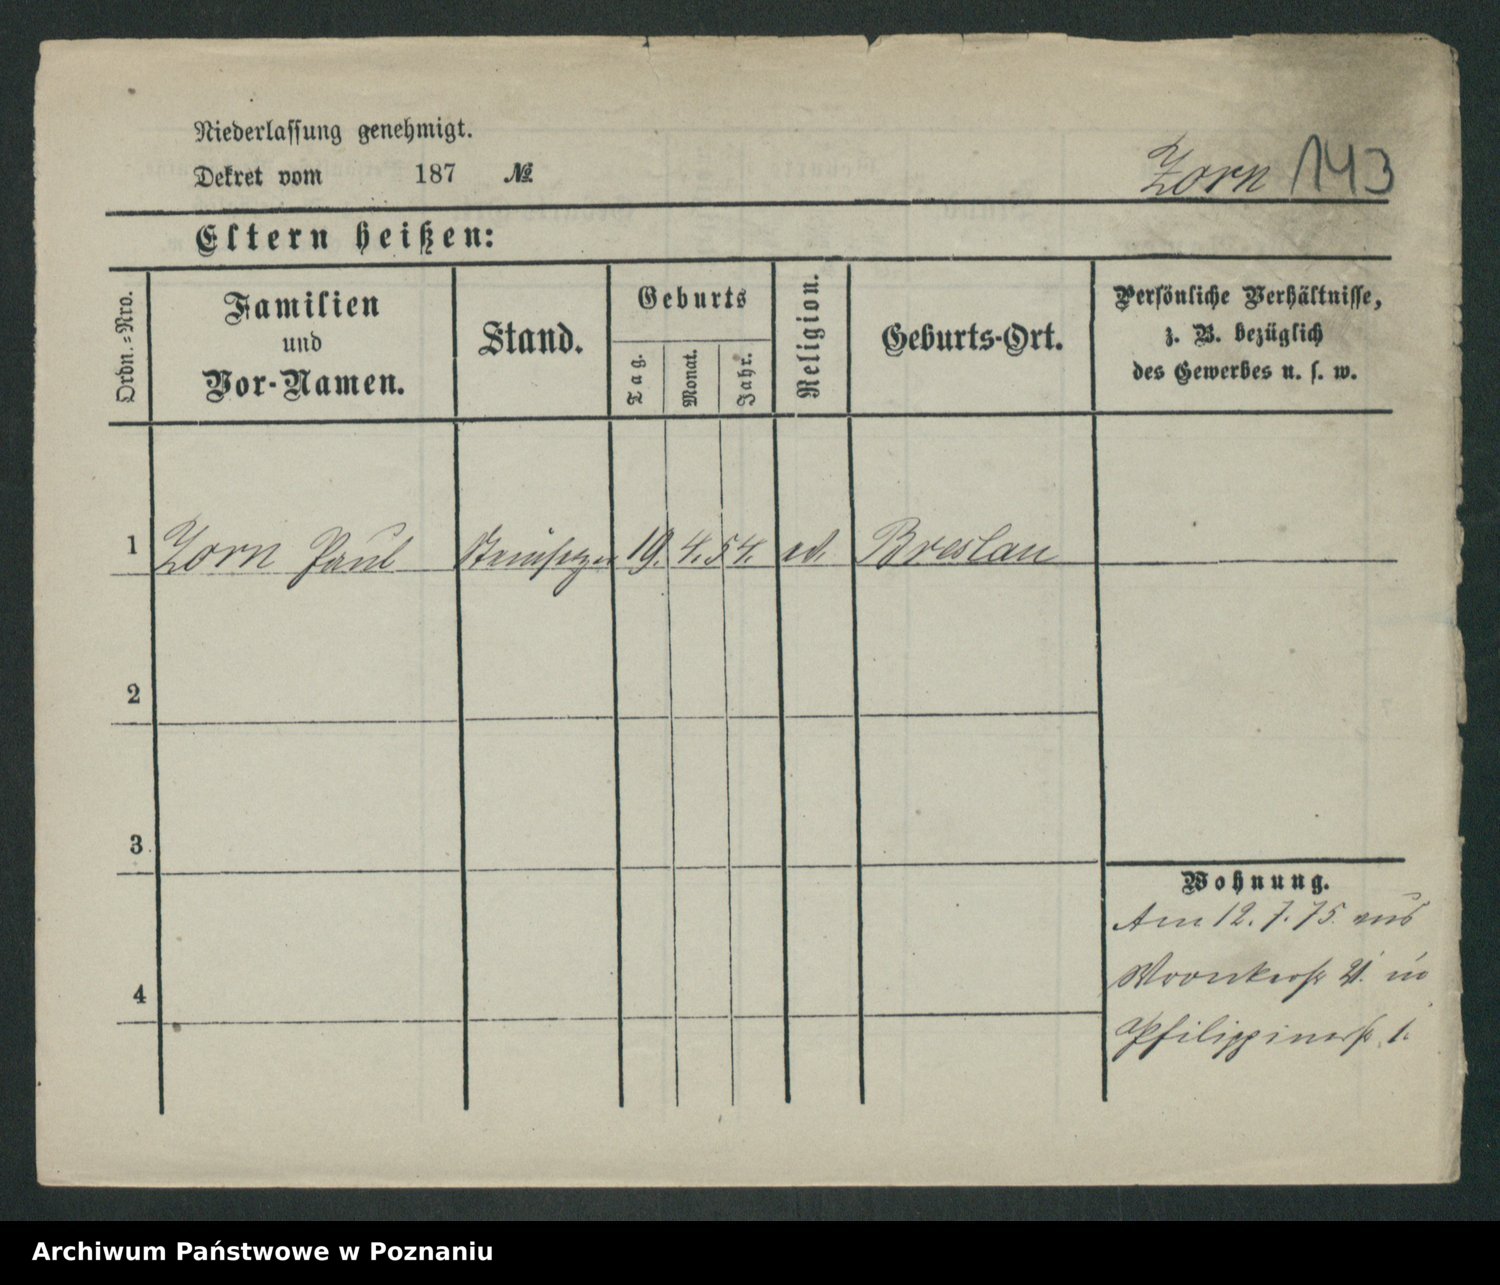 Niederlassung genehmigt.
Dekret vom 187 №
Zorn 143
Eltern heißen:
Ordn.=Nro.
Familien
und
Vor-Namen.
Stand.
Geburts
Tag.
Monat.
Jahr.
Religion.
Geburts-Ort.
Persönliche Verhältnisse,
z. B. bezüglich
des Gewerbes u. s. w.
1 Zorn Paul 19. 4. 54. Breslau
2
3
4
Wohnung.
Am 12. 7. 75. aus
Wronkerstr 21. in